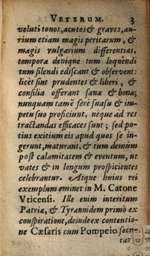 VETERVM. 3
veluti tonos, acutos & graves, au-
rium etiam magis peritarum, &
magis vulgarium differentias,
tempora denique tum loquendi
tum silendi edificant & observent:
licèt sint prudentes & liberi, &
consilia offerant sana & bona;
nunquam tamē ferè suasu & im-
petu suo proficiunt, neque ad res
tractandas efficaces sunt; sed po-
tius exitium eis apud quos se in-
gerunt, maturant, & tum demum
post calamitatem & eventum, ut
vates & in longum prospicientes
celebrantur. Atque huius rei
exemplum eminet in M. Catone
Vticensi. Ille enim interitum
Patriæ, & Tyrannidem primò ex
conspiratione, deinde ex contentio-
ne Cæsaris cum Pompeio secu-
tam